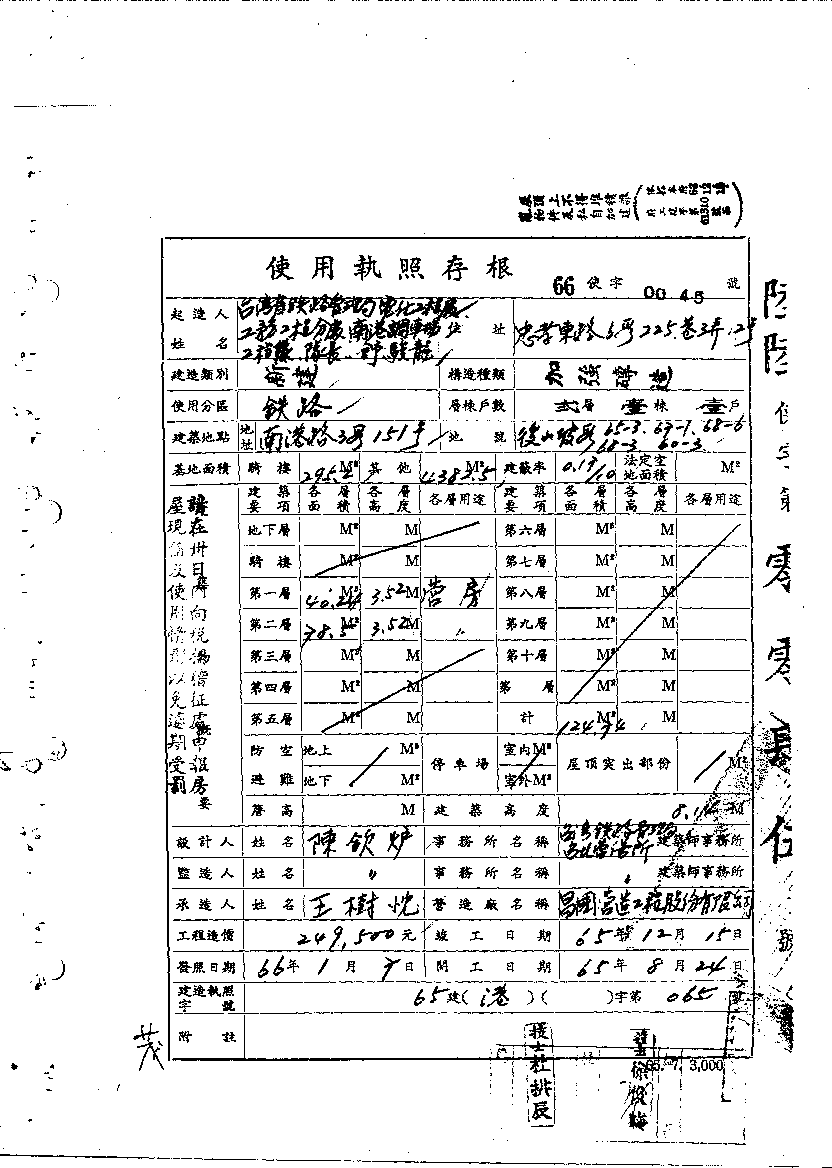 屋頂上不得堆積雜
物件及私自加建
使用執照存根
66 使字 0045 號
起造人姓名 台灣省鉄路管理局電化工程處工務工程分處南港調車場工程隊 隊長 住址 忠孝東路6号225巷3弄12号
建造類別 新建 構造種類 加強磚造
使用分區 鉄路 層棟戶數 弍層 壹棟 壹戶
建築地點 地址 南港路3号151号 地號 後山坡段 65-3. 69-1. 68-6 68-3. 60-3
基地面積 騎樓 295.2 M² 其他 4382.5 M² 建蔽率 0.19/10 法定空地面積 M²
建築要項 各層面積 各層高度 各層用途 建築要項 各層面積 各層高度 各層用途
地下層 M² M 第六層 M² M
騎樓 M² M 第七層 M² M
第一層 M² 3.52 M 营房 第八層 M² M
第二層 M² 3.52 M 〃 第九層 M² M
第三層 M² M 第十層 M² M
第四層 M² M 第 層 M² M
第五層 M² M 計 124.74 M²
防空 地上 M² 停車場 室內 M² 屋頂突出部份 M²
避難 地下 M² 室外 M²
簷高 M 建築高度 8.14 M
設計人 姓名 陳欽炉 事務所名稱 建築師事務所
監造人 姓名 〃 事務所名稱 〃 建築師事務所
承造人 姓名 王樹悅 營造廠名稱 昌國营造工程股份有限公司
工程造價 249,500元 竣工日期 65年12月15日
發照日期 66年1月7日 開工日期 65年8月24日
建造執照字號 65建(港)( )字第 065 號
附註
請在卅日內向稅捐稽征處申報房
屋現值及使用情形以免逾期受罰
65.7.3,000
技士杜排辰
使字第零零長伍號